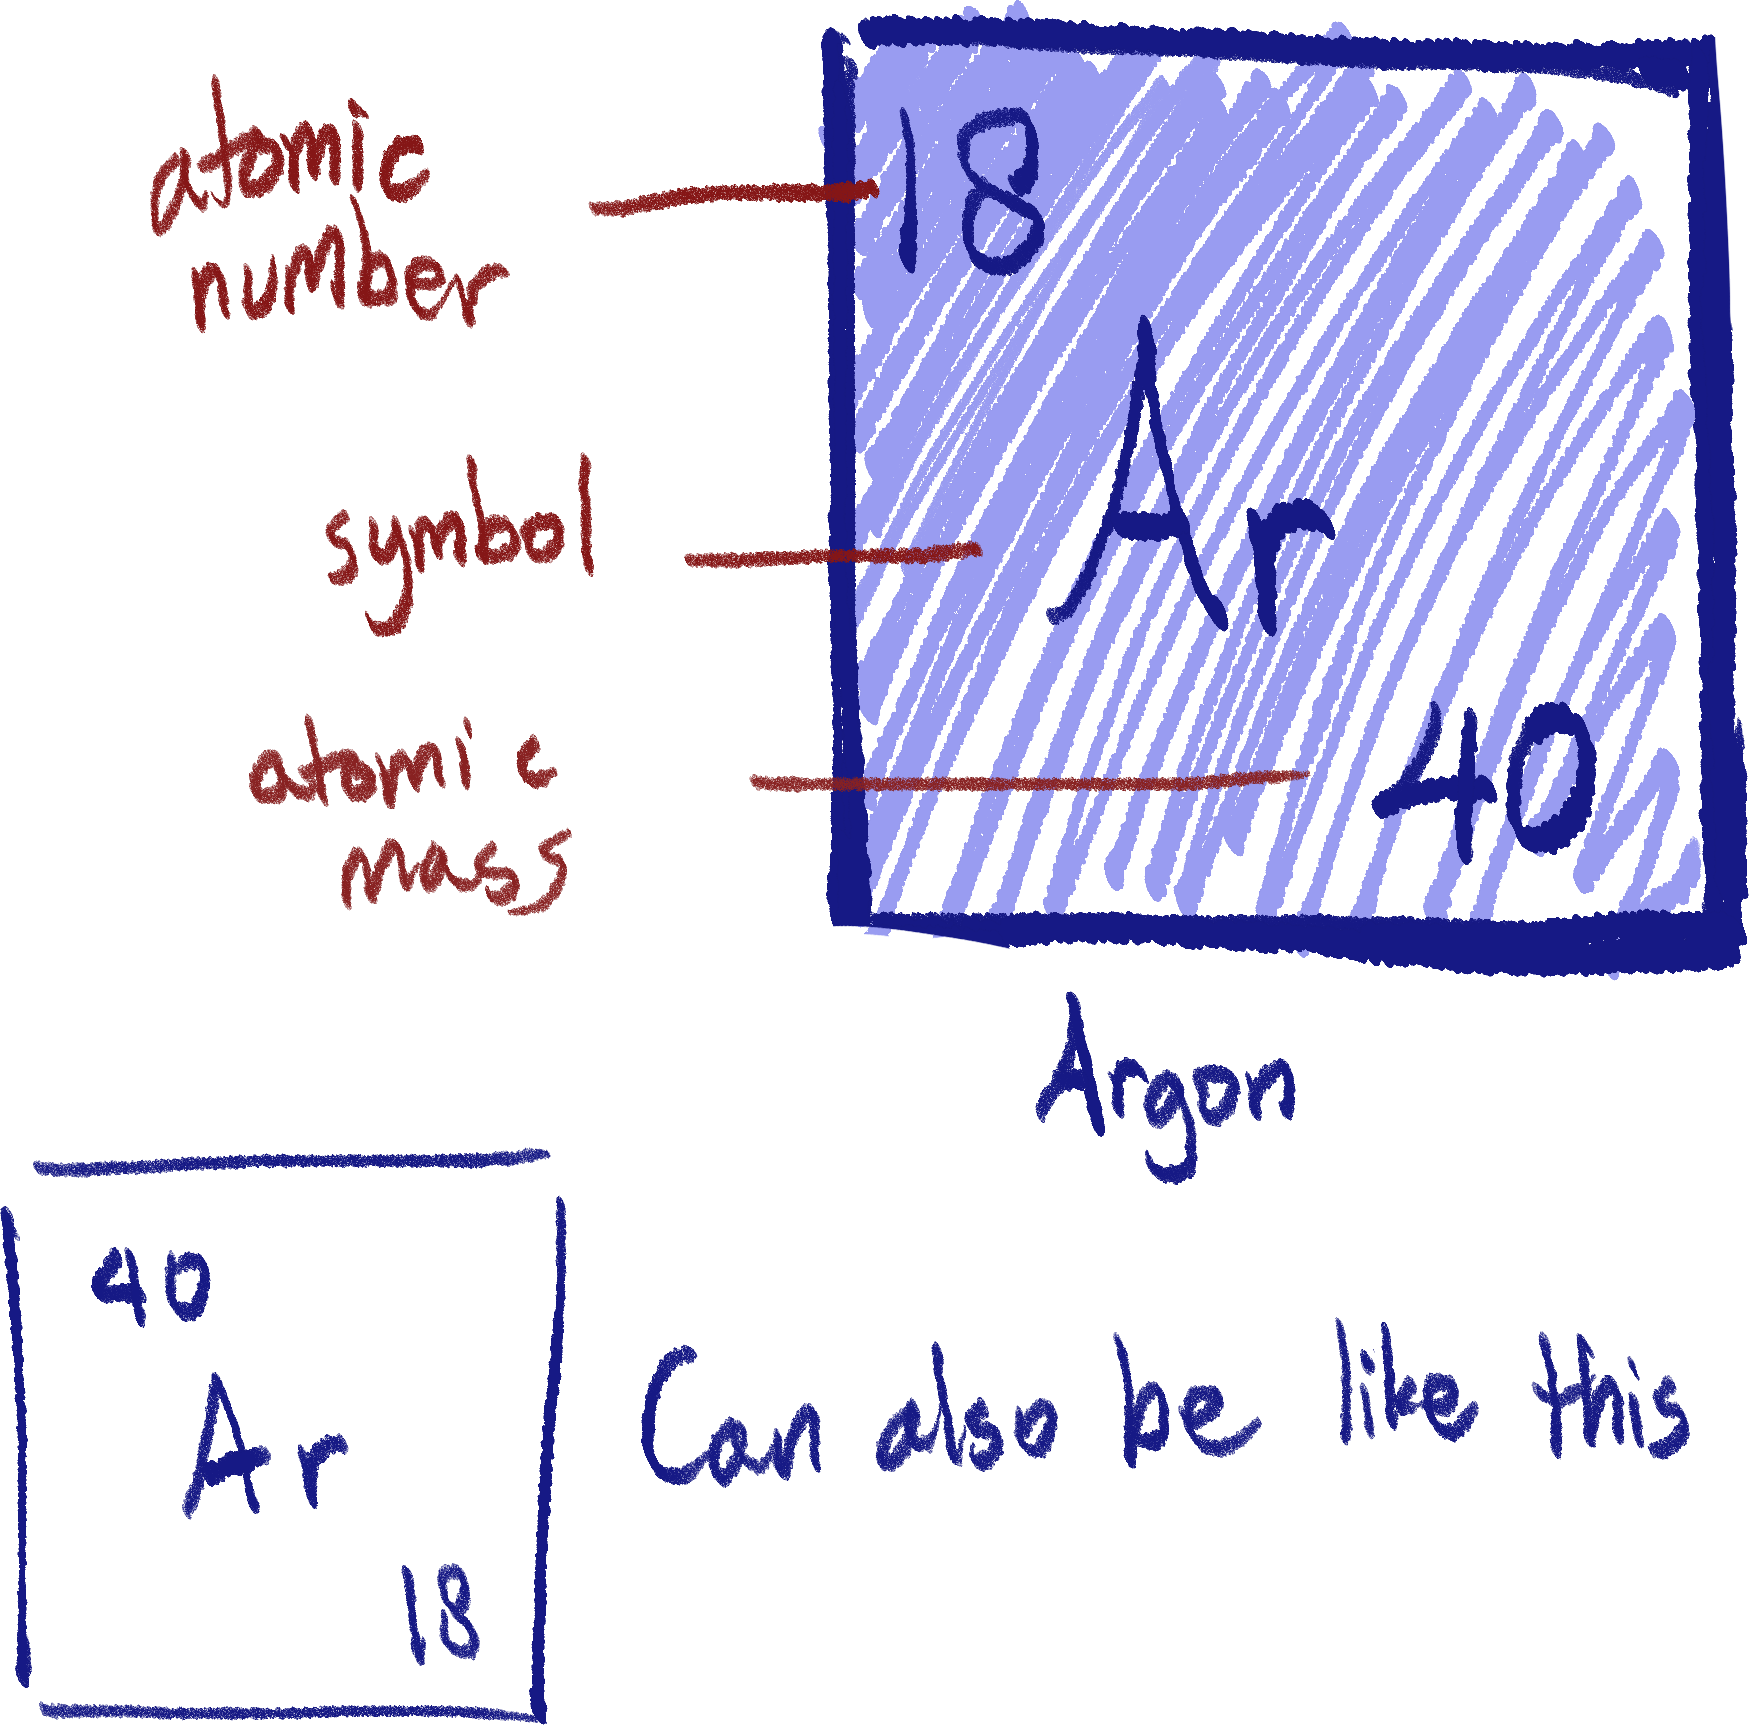 atomic
number
18
symbol
Ar
atomic
mass
40
Argon
40
Ar
18
Can also be like this